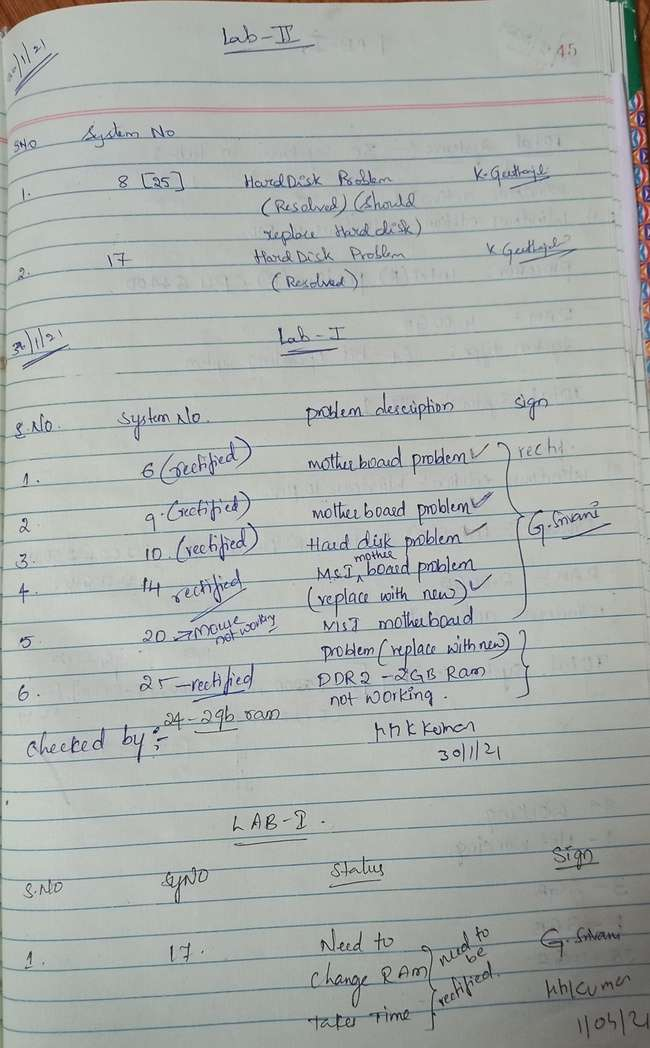 Lab-II
45
SNO System No
1. 8 [25] Hard Disk Problem K. Geethajli
(Resolved) (should
replace Hard disk)
2. 17 Hard Disk Problem K Geethajli
(Resolved)
30/1/21 Lab-I
S.No. System No. problem description sign
1. 6 (rectified) motherboard problem ✓ rechi.
2 9. (rectified) motherboard problem ✓
3. 10. (rectified) Hard disk problem ✓ G. Srivani
4. 14 rectified MSI mother board problem
(replace with new) ✓
5 20 → mouse not working MSI motherboard
problem (replace with new)
6. 25 - rectified DDR2 - 2GB Ram
not working.
24 - 2gb ram
Checked by :- HHK Kumar
30/1/21
LAB-I.
S.NO SyNO Status Sign
1. 17. Need to G. Srivani
change RAM need to be rectified.
Takes Time HHKumar
1/03/21